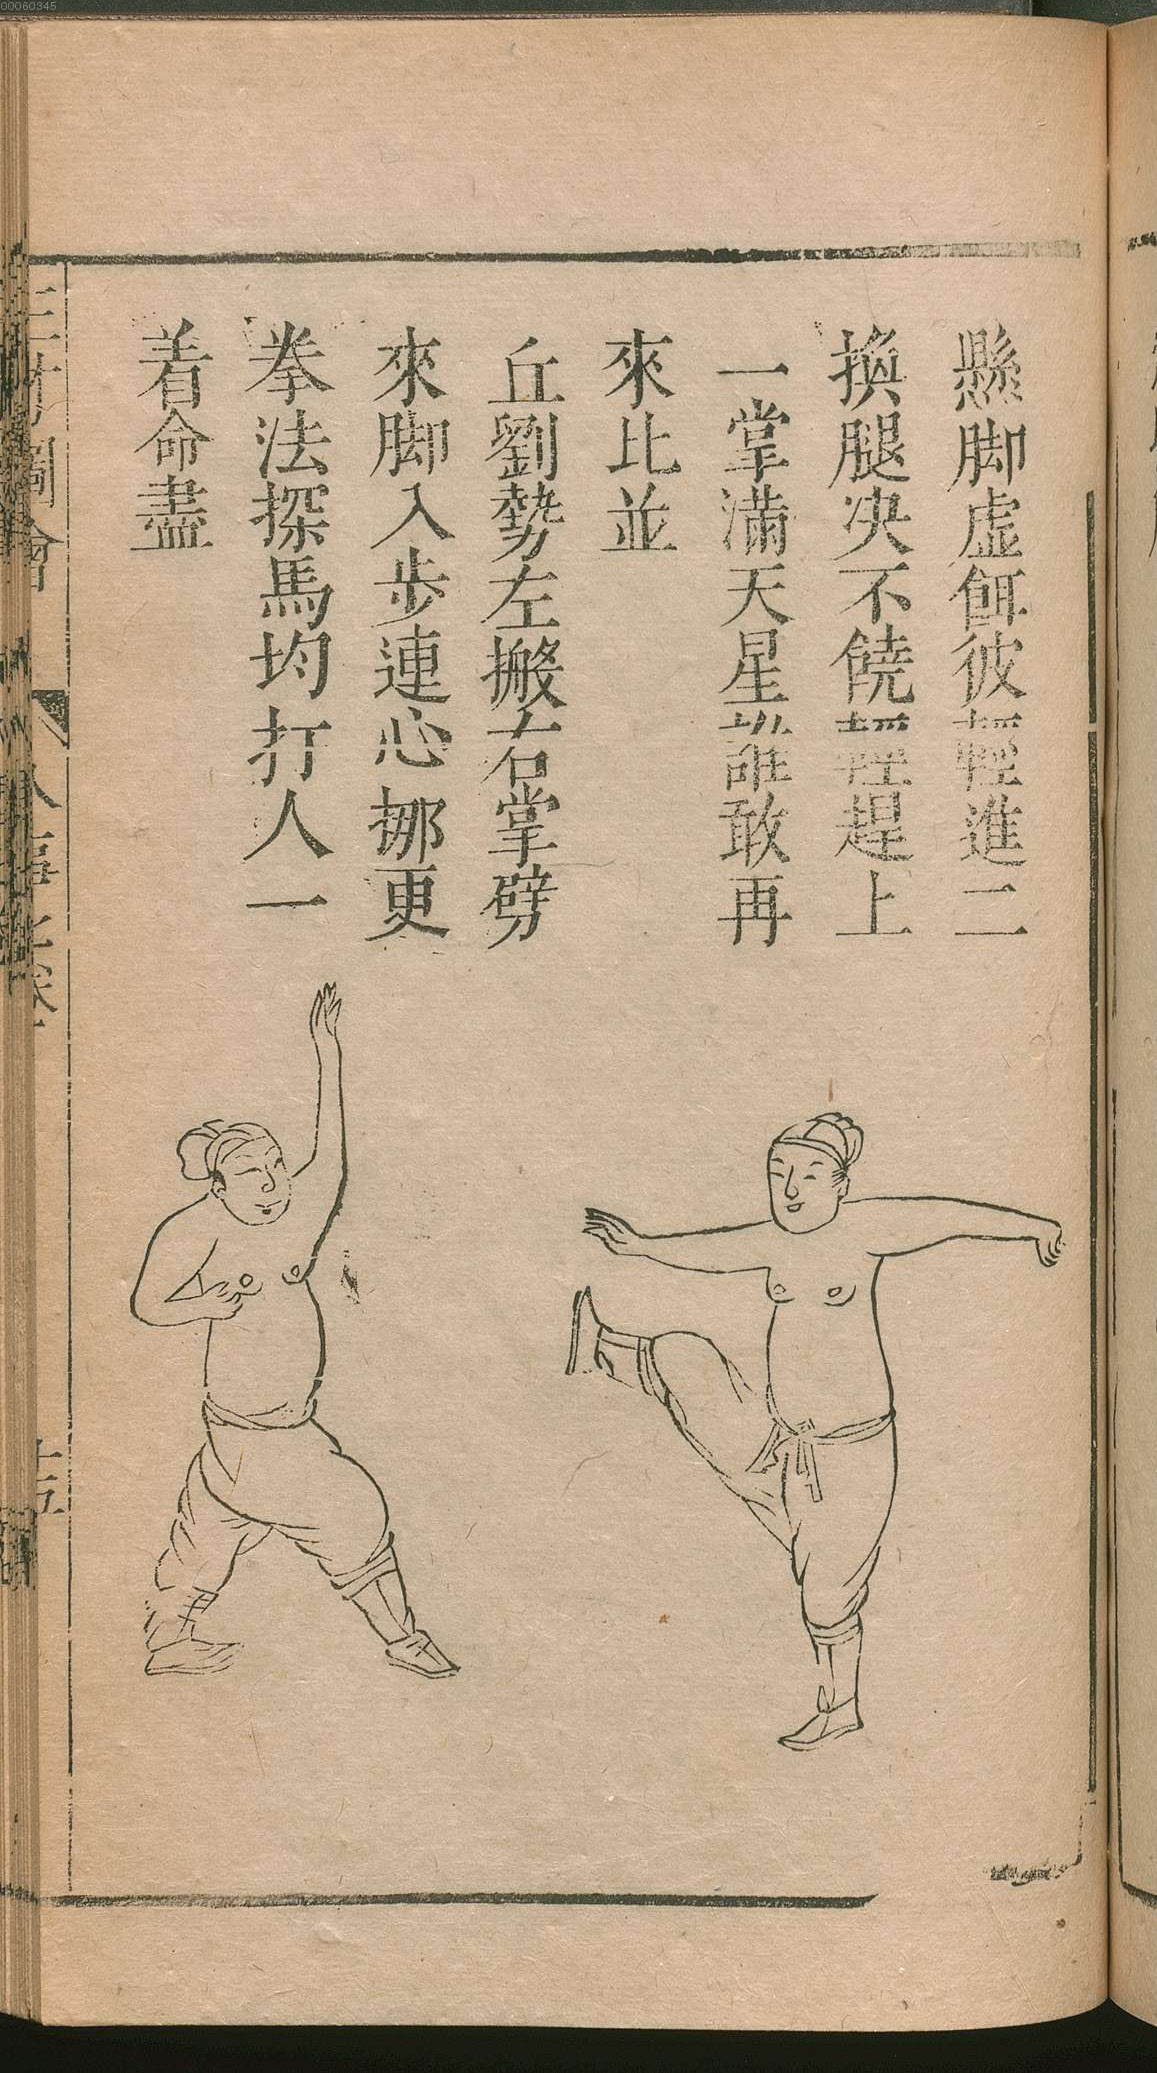 懸脚虛餌彼輕進二
換腿决不饒輕趕上
一掌滿天星誰敢再
來比並
丘劉勢左搬右掌劈
來脚入步連心挪更
拳法探馬均打人一
着命盡
三才圖會
人事七卷
十五
00060345